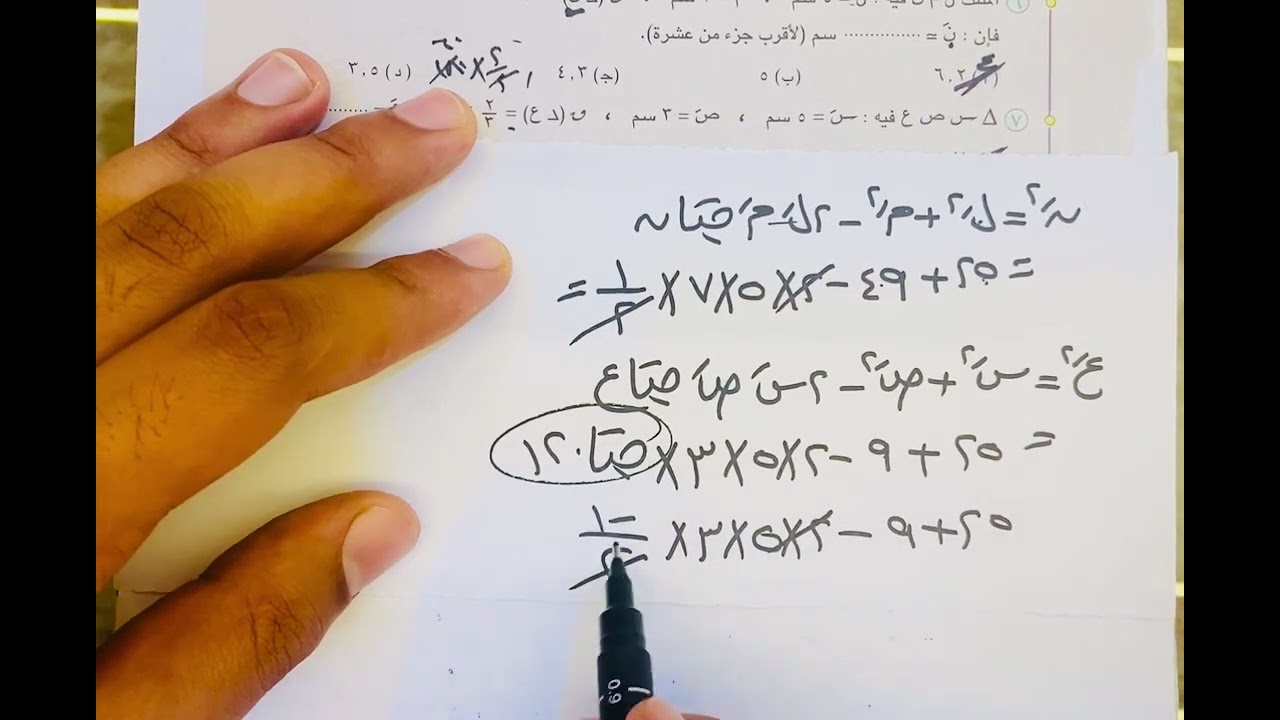 فإن : نَ ≃ ............... سم (لأقرب جزء من عشرة).
٦,٢ (ب) ٥ (ج) ٤,٣ (د) ٣,٥
٢/٣ ×
٧ Δ س ص ع فيه : سَ = ٥ سم ، صَ = ٣ سم ، ق (د ع) = ٢/٣
نَ٢ = لَ٢ + مَ٢ - ٢ لَ مَ حتا ن
= ٢٥ + ٤٩ - ٢ × ٥ × ٧ × ١/٢ =
عَ٢ = سَ٢ + صَ٢ - ٢ سَ صَ حتا ع
= ٢٥ + ٩ - ٢ × ٥ × ٣ × حتا ١٢٠
٢٥ + ٩ - ٢ × ٥ × ٣ × -١/٢
0.9